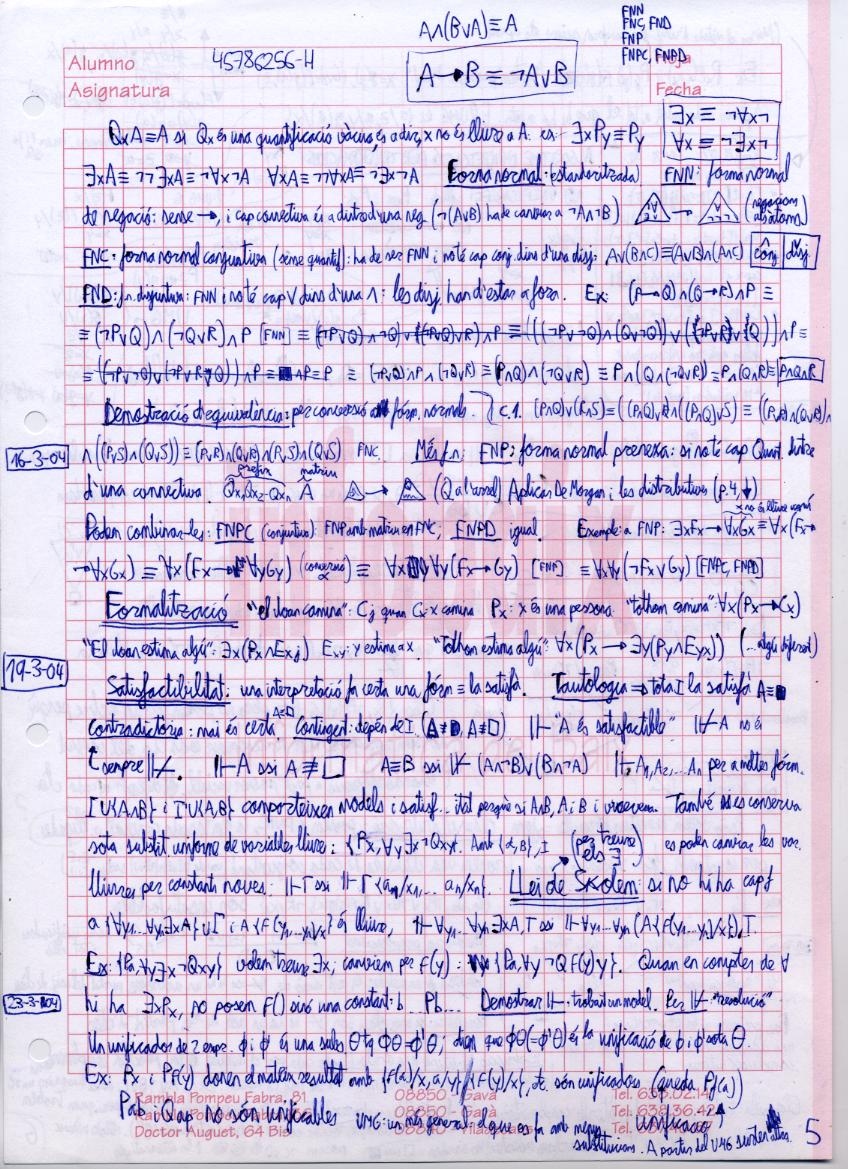 A∧(B∨A)≡A
FNN
FNC, FND
FNP
FNPC, FNPD
Alumno 45786256-H
A→B≡¬A∨B
Asignatura
Fecha
∃x≡¬∀x¬
∀x≡¬∃x¬
QxA≡A si Qx és una quantificació vàcua, és a dir, x no és lliure a A. ex: ∃xPy≡Py
∃xA≡¬¬∃xA≡¬∀x¬A ∀xA≡¬¬∀xA≡¬∃x¬A Forma normal: estandaritzada) FNN: forma normal
de negació: sense →, i cap connectiva és a dintre d'una neg. (¬(A∨B) ha de canviar a ¬A∧¬B) → (negacions als àtoms)
FNC: forma normal conjuntiva (sense quantif): ha de ser FNN i no té cap conj. dins d'una disj. A∨(B∧C)≡(A∨B)∧(A∨C) conj disj
FND: f.n. disjuntiva: FNN i no té cap ∨ dins d'una ∧: les disj. han d'estar a fora. Ex: (P→Q)∧(Q→R)∧P≡
≡(¬P∨Q)∧(¬Q∨R)∧P [FNN] ≡
≡ (¬P∨Q)∧P∧(¬Q∨R)≡(P∧Q)∧(¬Q∨R)≡P∧(Q∧(¬Q∨R))≡P∧(Q∧R)≡P∧Q∧R
Demostració d'equivalència: per conversió a fórm. normals. C.1. (P∧Q)∨(R∧S)≡((P∧Q)∨R)∧((P∧Q)∨S)≡((P∨R)∧(Q∨R))∧
16-3-04 ∧((P∨S)∧(Q∨S))≡(P∨R)∧(Q∨R)∧(P∨S)∧(Q∨S) FNC. Més f.n.: FNP: forma normal prenexa: si no té cap Quant. dintre
prefix matriu
d'una connectiva. Qx₁Qx₂...Qxn A → (Q a l'arrel) Aplicar De Morgan i les distributives (p.4,↓)
x no és lliure
Poden combinar-les: FNPC (conjuntiva): FNP amb matriu en FNC; FNPD igual. Exemple: a FNP: ∃xFx→∀xGx≡∀x(Fx→
→∀xGx)≡∀x(Fx→∀yGy) (conversió α)≡∀x∀y(Fx→Gy) [FNP] ≡∀x∀y(¬Fx∨Gy) [FNPC, FNPD]
Formalització "el Joan camina": Cj quan Cx: x camina Px: x és una persona "tothom camina": ∀x(Px→Cx)
"El Joan estima algú": ∃x(Px∧Exj) Exy: y estima a x. "Tothom estima algú": ∀x(Px→∃y(Py∧Eyx)) (...algú diferent)
19-3-04
Satisfactibilitat: una interpretació fa certa una fórm ≡ la satisfà. Tautologia ⇒ tota I la satisfà A≡■
A≡□
contradictòria: mai és certa Contingent: depèn de I. (A≢■, A≢□) ⊩ "A és satisfactible" ⊮A no és
sempre ⊮. ⊩A ssi A≢□ A≡B ssi ⊮(A∧¬B)∨(B∧¬A) ⊩A₁,A₂,...An per a moltes fórm.
Γ∪{A∧B} i Γ∪{A,B} comparteixen models i satisf... ital perquè si A∧B, A i B i viceversa. També es conserva
sota substit. uniforme de variables lliures: {Px, ∀y∃x¬Qxy}. Amb (per treure els ∃) es poden canviar les var.
lliures per constants noves: ⊩Γ ssi ⊩Γ{a₁/x₁,... an/xn}. Llei de Skolem: si no hi ha cap f
a {∀y₁...∀yn∃xA}∪Γ i A{F(y₁,...yn)/x} és lliure, ⊩∀y₁...∀yn∃xA,Γ ssi ⊩∀y₁...∀yn(A{F(y₁,...yn)/x}),Γ.
Ex: {Pa, ∀y∃x¬Qxy} volem treure ∃x; canviem per f(y): {Pa, ∀y¬Qf(y)y}. Quan en comptes de ∀
23-3-04 hi ha ∃xPx, no posem f() sinó una constant: b... Pb... Demostrar ⊩: trobar un model. Per ⊮: "resolució"
Un unificador de 2 expr. φ i φ' és una subs. θ tq φθ=φ'θ; diem que φθ(=φ'θ) és la unificació de φ i φ' sota θ.
Ex: Px i Pf(y) donen el mateix resultat amb {f(a)/x, a/y}, {f(y)/x}, etc. són unificadors (queda Pf(a))
Pa i Qax no són unificables UMG: un més general el que es fa amb menys substitucions. A partir del UMG surten altres.
unificació
Rambla Pompeu Fabra, 81 08850 - Gavà
Doctor Auguet, 64 Bis
5